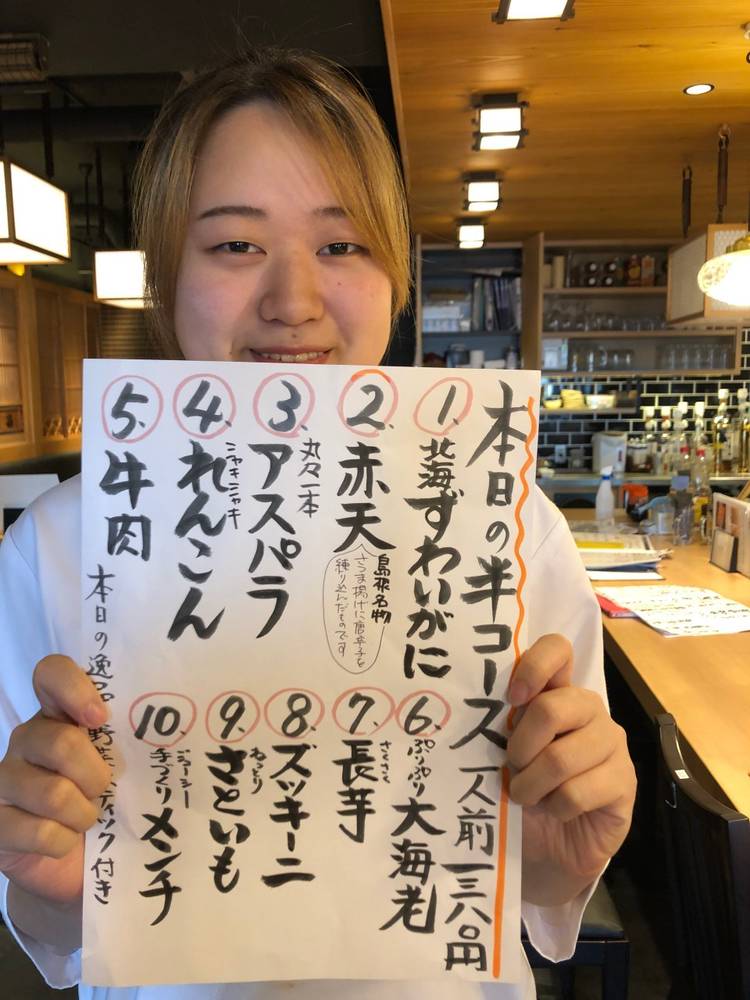 本日の半コース 一人前 一三八〇円
1. 北海ずわいがに
2. 赤天
島根名物
さつま揚げに唐辛子を
練り込んだものです
3. 丸々一本
アスパラ
4. シャキシャキ
れんこん
5. 牛肉
6. ぷりぷり
大海老
7. さくさく
長芋
8. ズッキーニ
9. ねっとり
さといも
10. ジューシー
手づくり
メンチ
本日の逸品 野菜スティック付き